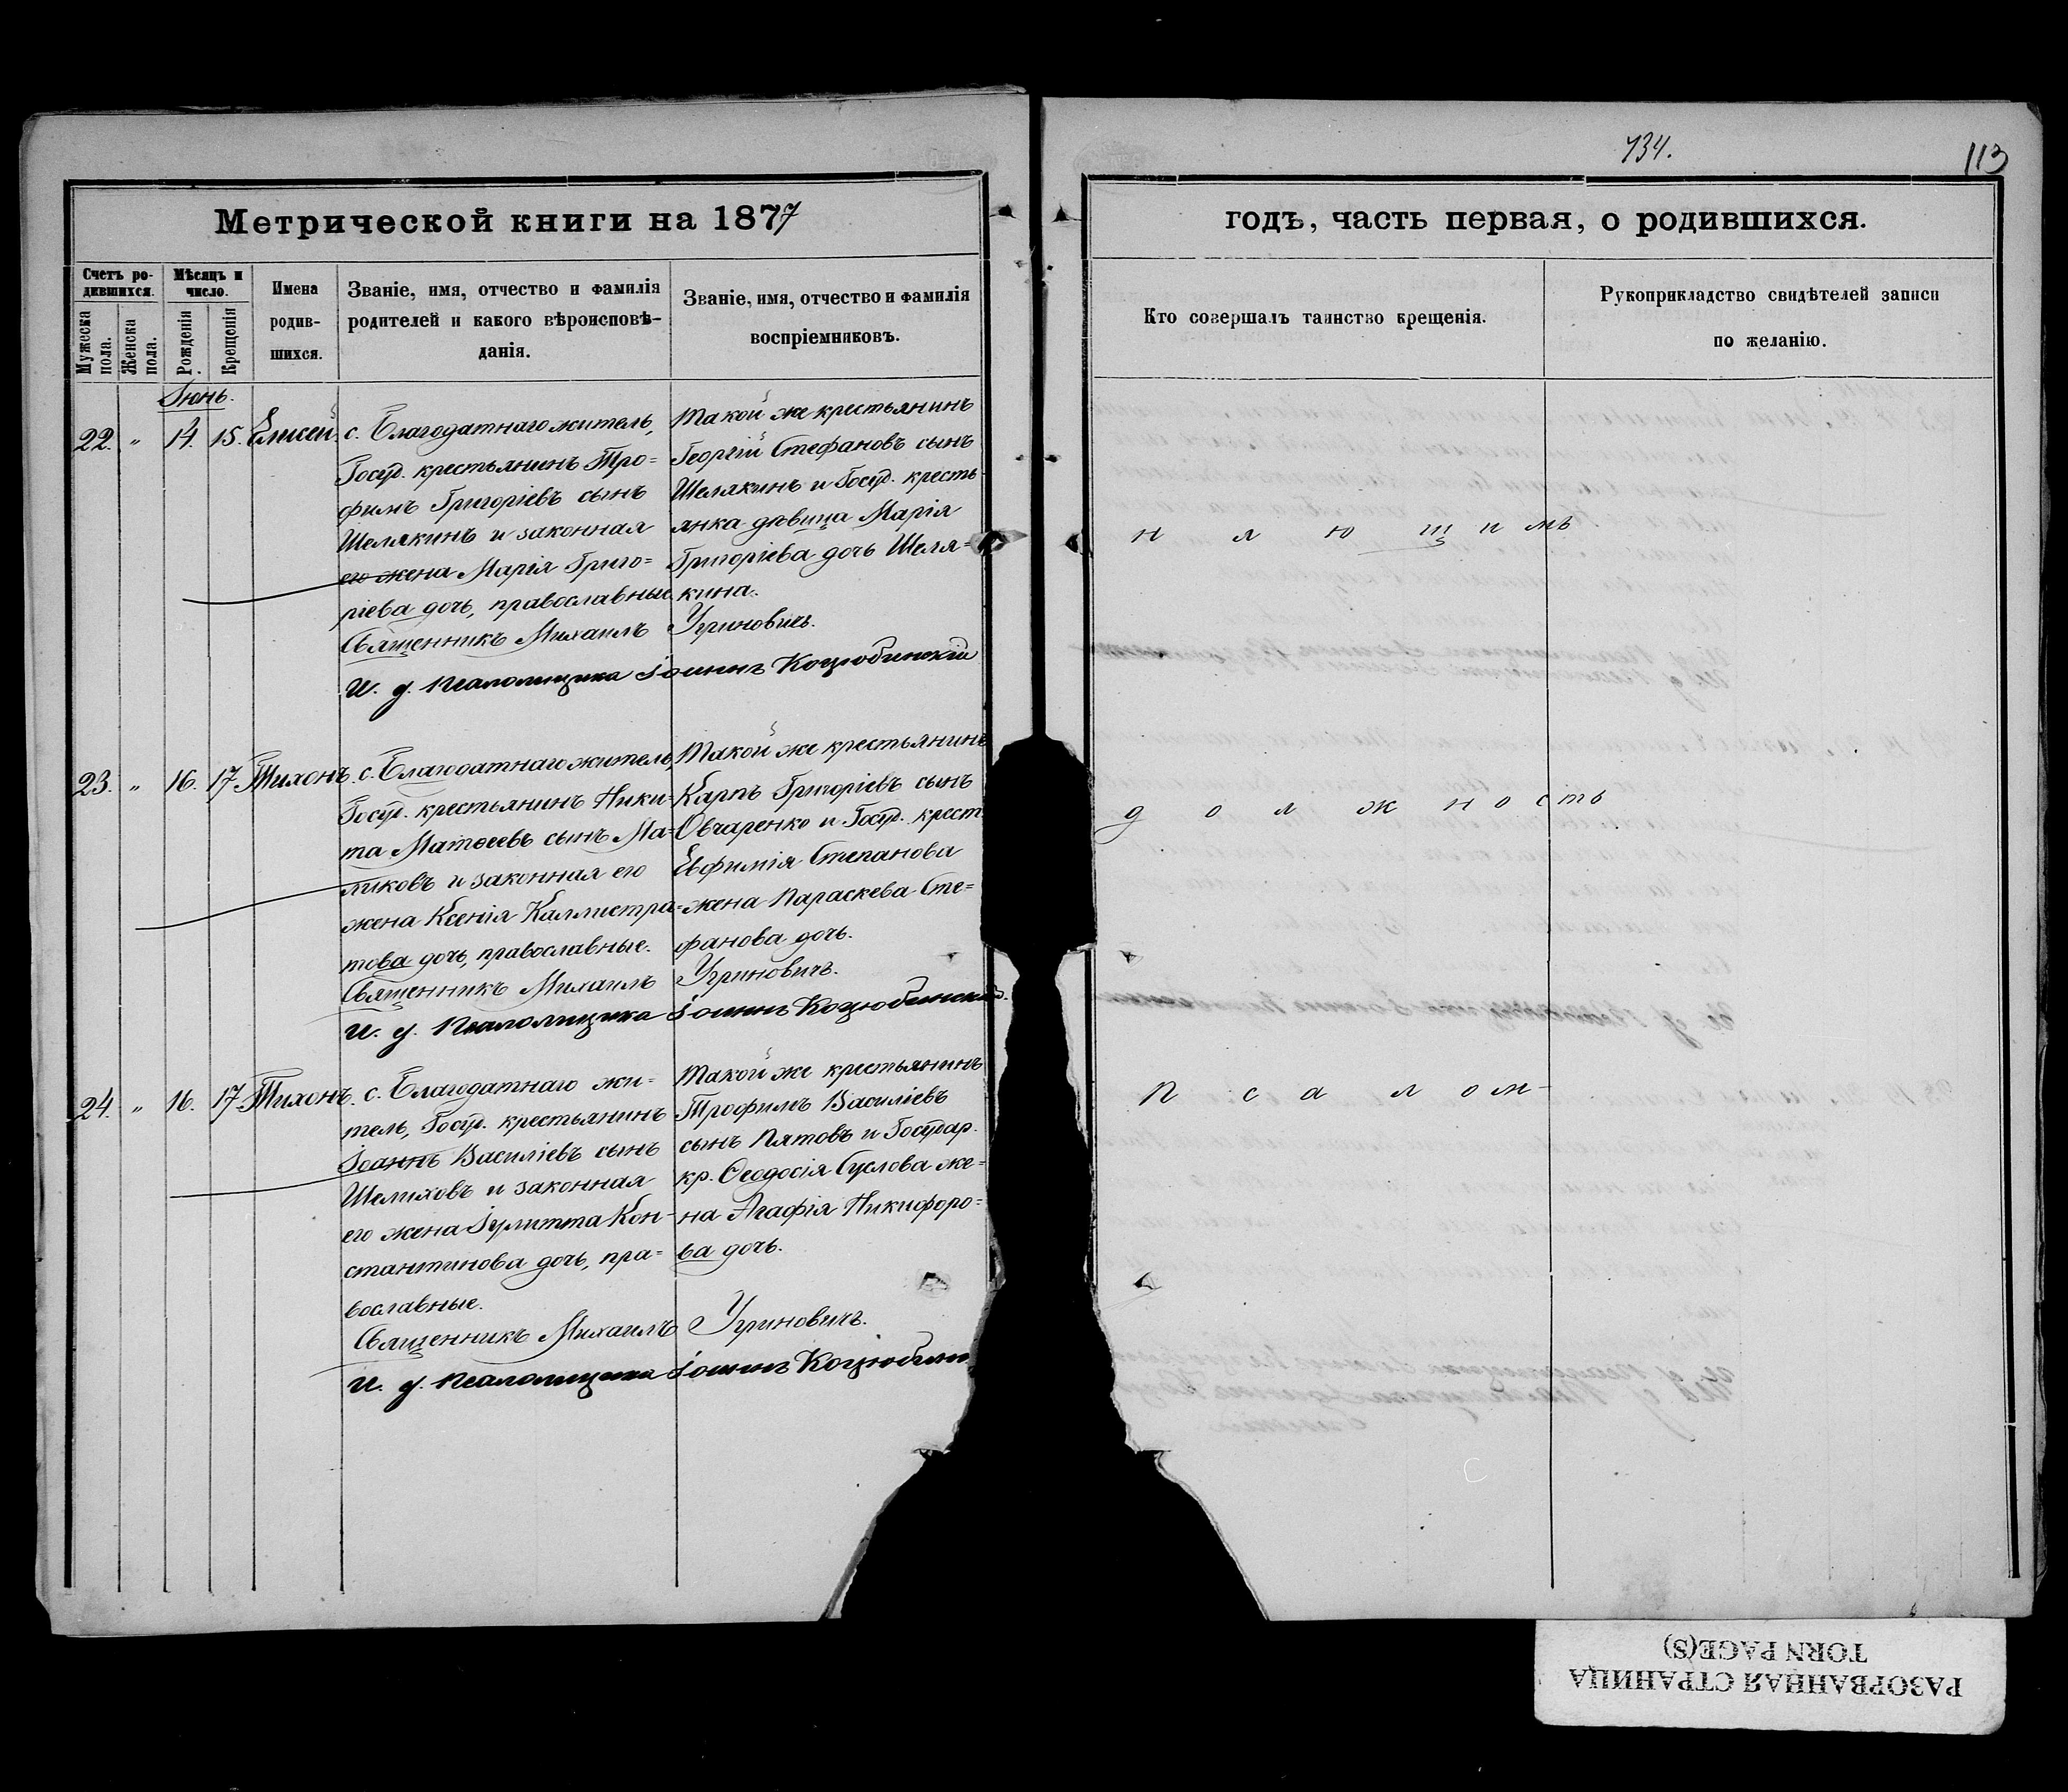 734.
113
Метрической книги на 1877
годъ, часть первая, о родившихся.
Счетъ ро-
дившихся.
Мужеска пола.
Женска пола.
Мѣсяцъ и
число.
Рожденія
Крещенія
Имена
родив-
шихся.
Званіе, имя, отчество и фамилія
родителей и какого вѣроисповѣ-
данія.
Званіе, имя, отчество и фамилія
воспріемниковъ.
Кто совершалъ таинство крещенія.
Рукоприкладство свидѣтелей записи
по желанію.
Іюнь.
22. " 14. 15. Елисей.
с. Благодатнаго житель,
Госуд. крестьянинъ Тро=
фимъ Григоріевъ сынъ
Шелякинъ и законная
его жена Марія Григо=
ріева дочь, православные.
Такой же крестьянинъ
Георгій Стефановъ сынъ
Шелякинъ и Госуд. кресть-
янка дѣвица Марія
Григоріева дочь Шеля=
кина.
Священникъ Михаилъ Угриновичъ.
И. д. Псаломщика Іоаннъ Коцюбинскій
н я ю щ и мъ
23. " 16. 17. Тихонъ.
с. Благодатнаго житель,
Госуд. крестьянинъ Ники-
та Матѳеевъ сынъ Ма-
ликовъ и законная его
жена Ксенія Каллистра=
това дочь, православные.
Такой же крестьянинъ
Карпъ Григоріевъ сынъ
Овчаренко и Госуд. крест.
Евфимія Степанова
жена Параскева Сте=
фанова дочь.
Священникъ Михаилъ Угриновичъ.
И. д. Псаломщика Іоаннъ Коцюбинскій.
д о л ж н о с т ь
24. " 16. 17. Тихонъ.
с. Благодатнаго жи=
тель, Госуд. крестьянинъ
Іоаннъ Василіевъ сынъ
Шелиховъ и законная
его жена Іулитта Кон-
стантинова дочь, пра=
вославные.
Такой же крестьянинъ
Трофимъ Василіевъ
сынъ Пятовъ и Государ.
кр. Ѳеодосія Суслова же=
на Агафія Никифоро=
ва дочь.
Священникъ Михаилъ Угриновичъ.
И. д. Псаломщика Іоаннъ Коцюбин
П с а л о м-
РАЗОРВАННАЯ СТРАНИЦА
TORN PAGE(S)